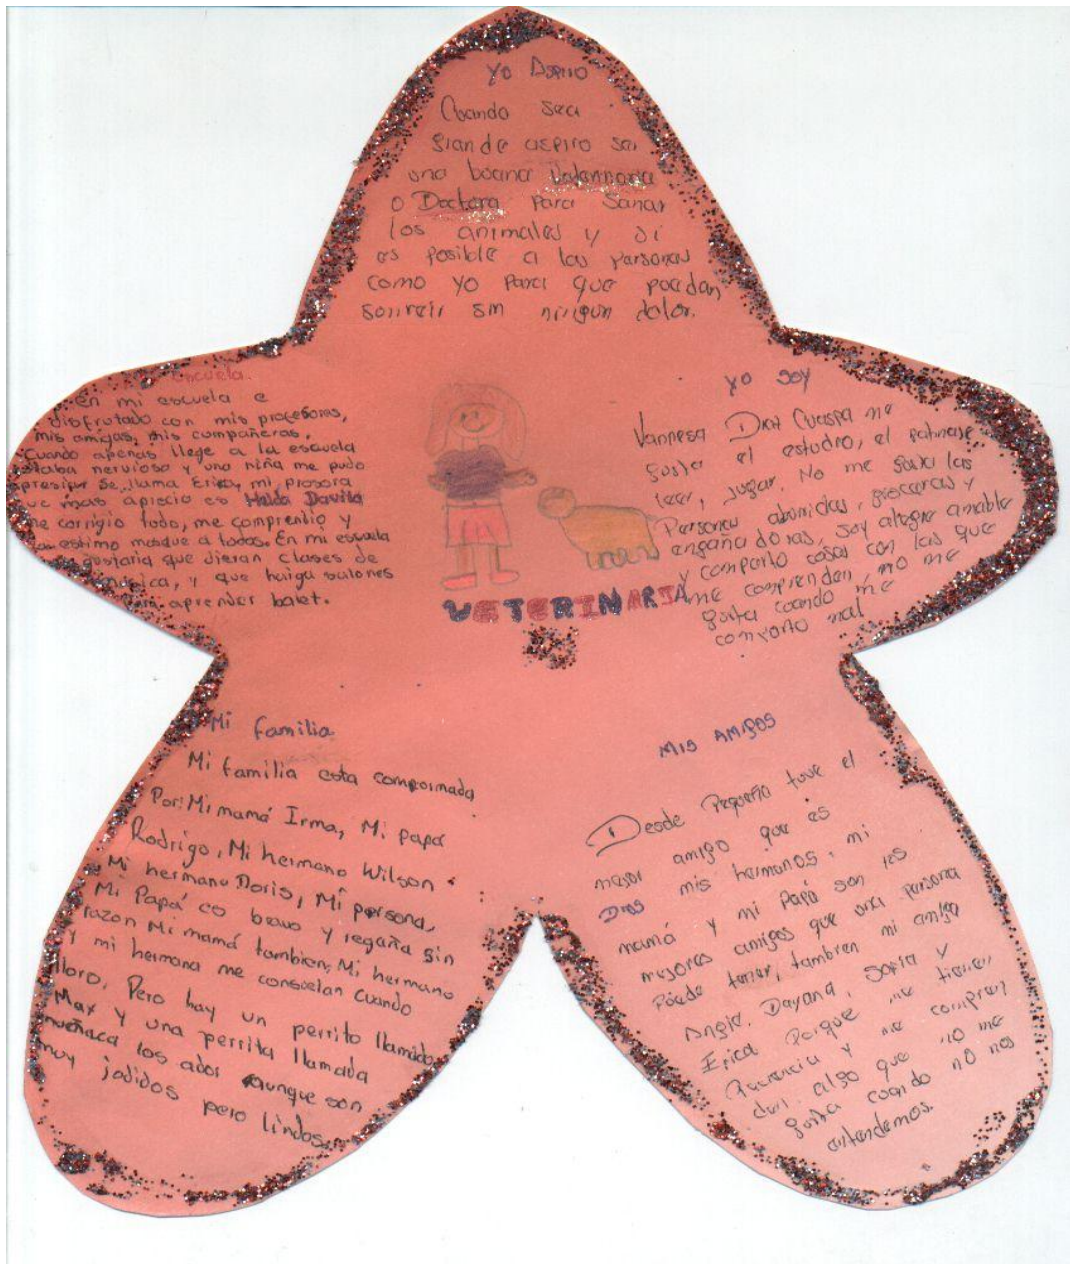 Yo Aspiro
Cuando sea
grande aspiro ser
una buena Veterinaria
o Doctora para Sanar
los animales y si
es posible a las personas
como yo para que puedan
sonreir sin ningun dolor.
escuela.
en mi escuela e
disfrutado con mis profesores,
mis amigas, mis compañeros.
Cuando apenas llege a la escuela
estaba nerviosa y una niña me pudo
se llama Erika, mi prosora
que mas aprecio es Helda Davila
me corrigio todo, me comprendio y
estimo masque a todos. En mi escuela
gustaria que dieran clases de
y que haiga salones
para aprender balet.
yo soy
Vannesa Diaz Cuaspa me
gusta el estudio, el patinaje
leer, jugar. No me gusta las
Personas aburridas, groceras y
engañadoras, soy alegre amable
y comparto cosas con las que
me comprenden, no me
gusta cuando me
comporto mal
VETERINARIA
Mi familia
Mi familia esta compormada
Por: Mi mamá Irma, Mi papá
Rodrigo, Mi hermano Wilson
Mi hermano Doris, Mi persona,
Mi Papá es bravo y regaña sin
razon Mi mamá tambien, Mi hermano
Y mi hermana me consuelan cuando
lloro, Pero hay un perrito llamado
Max y una perrita llamada
muñaca los ador aunque son
muy jodidos pero lindos
MIS AMIGOS
Desde Pequeña tuve el
mejor amigo que es
Dios mis hermanos, mi
mamá y mi Papá son los
mejores amigos que una persona
Puede tener, tambien mi amiga
Angie, Dayana, Sofia y
Erica Porque me tienen
Paciencia y me compren
den algo que no me
gusta cuando no nos
entendemos.